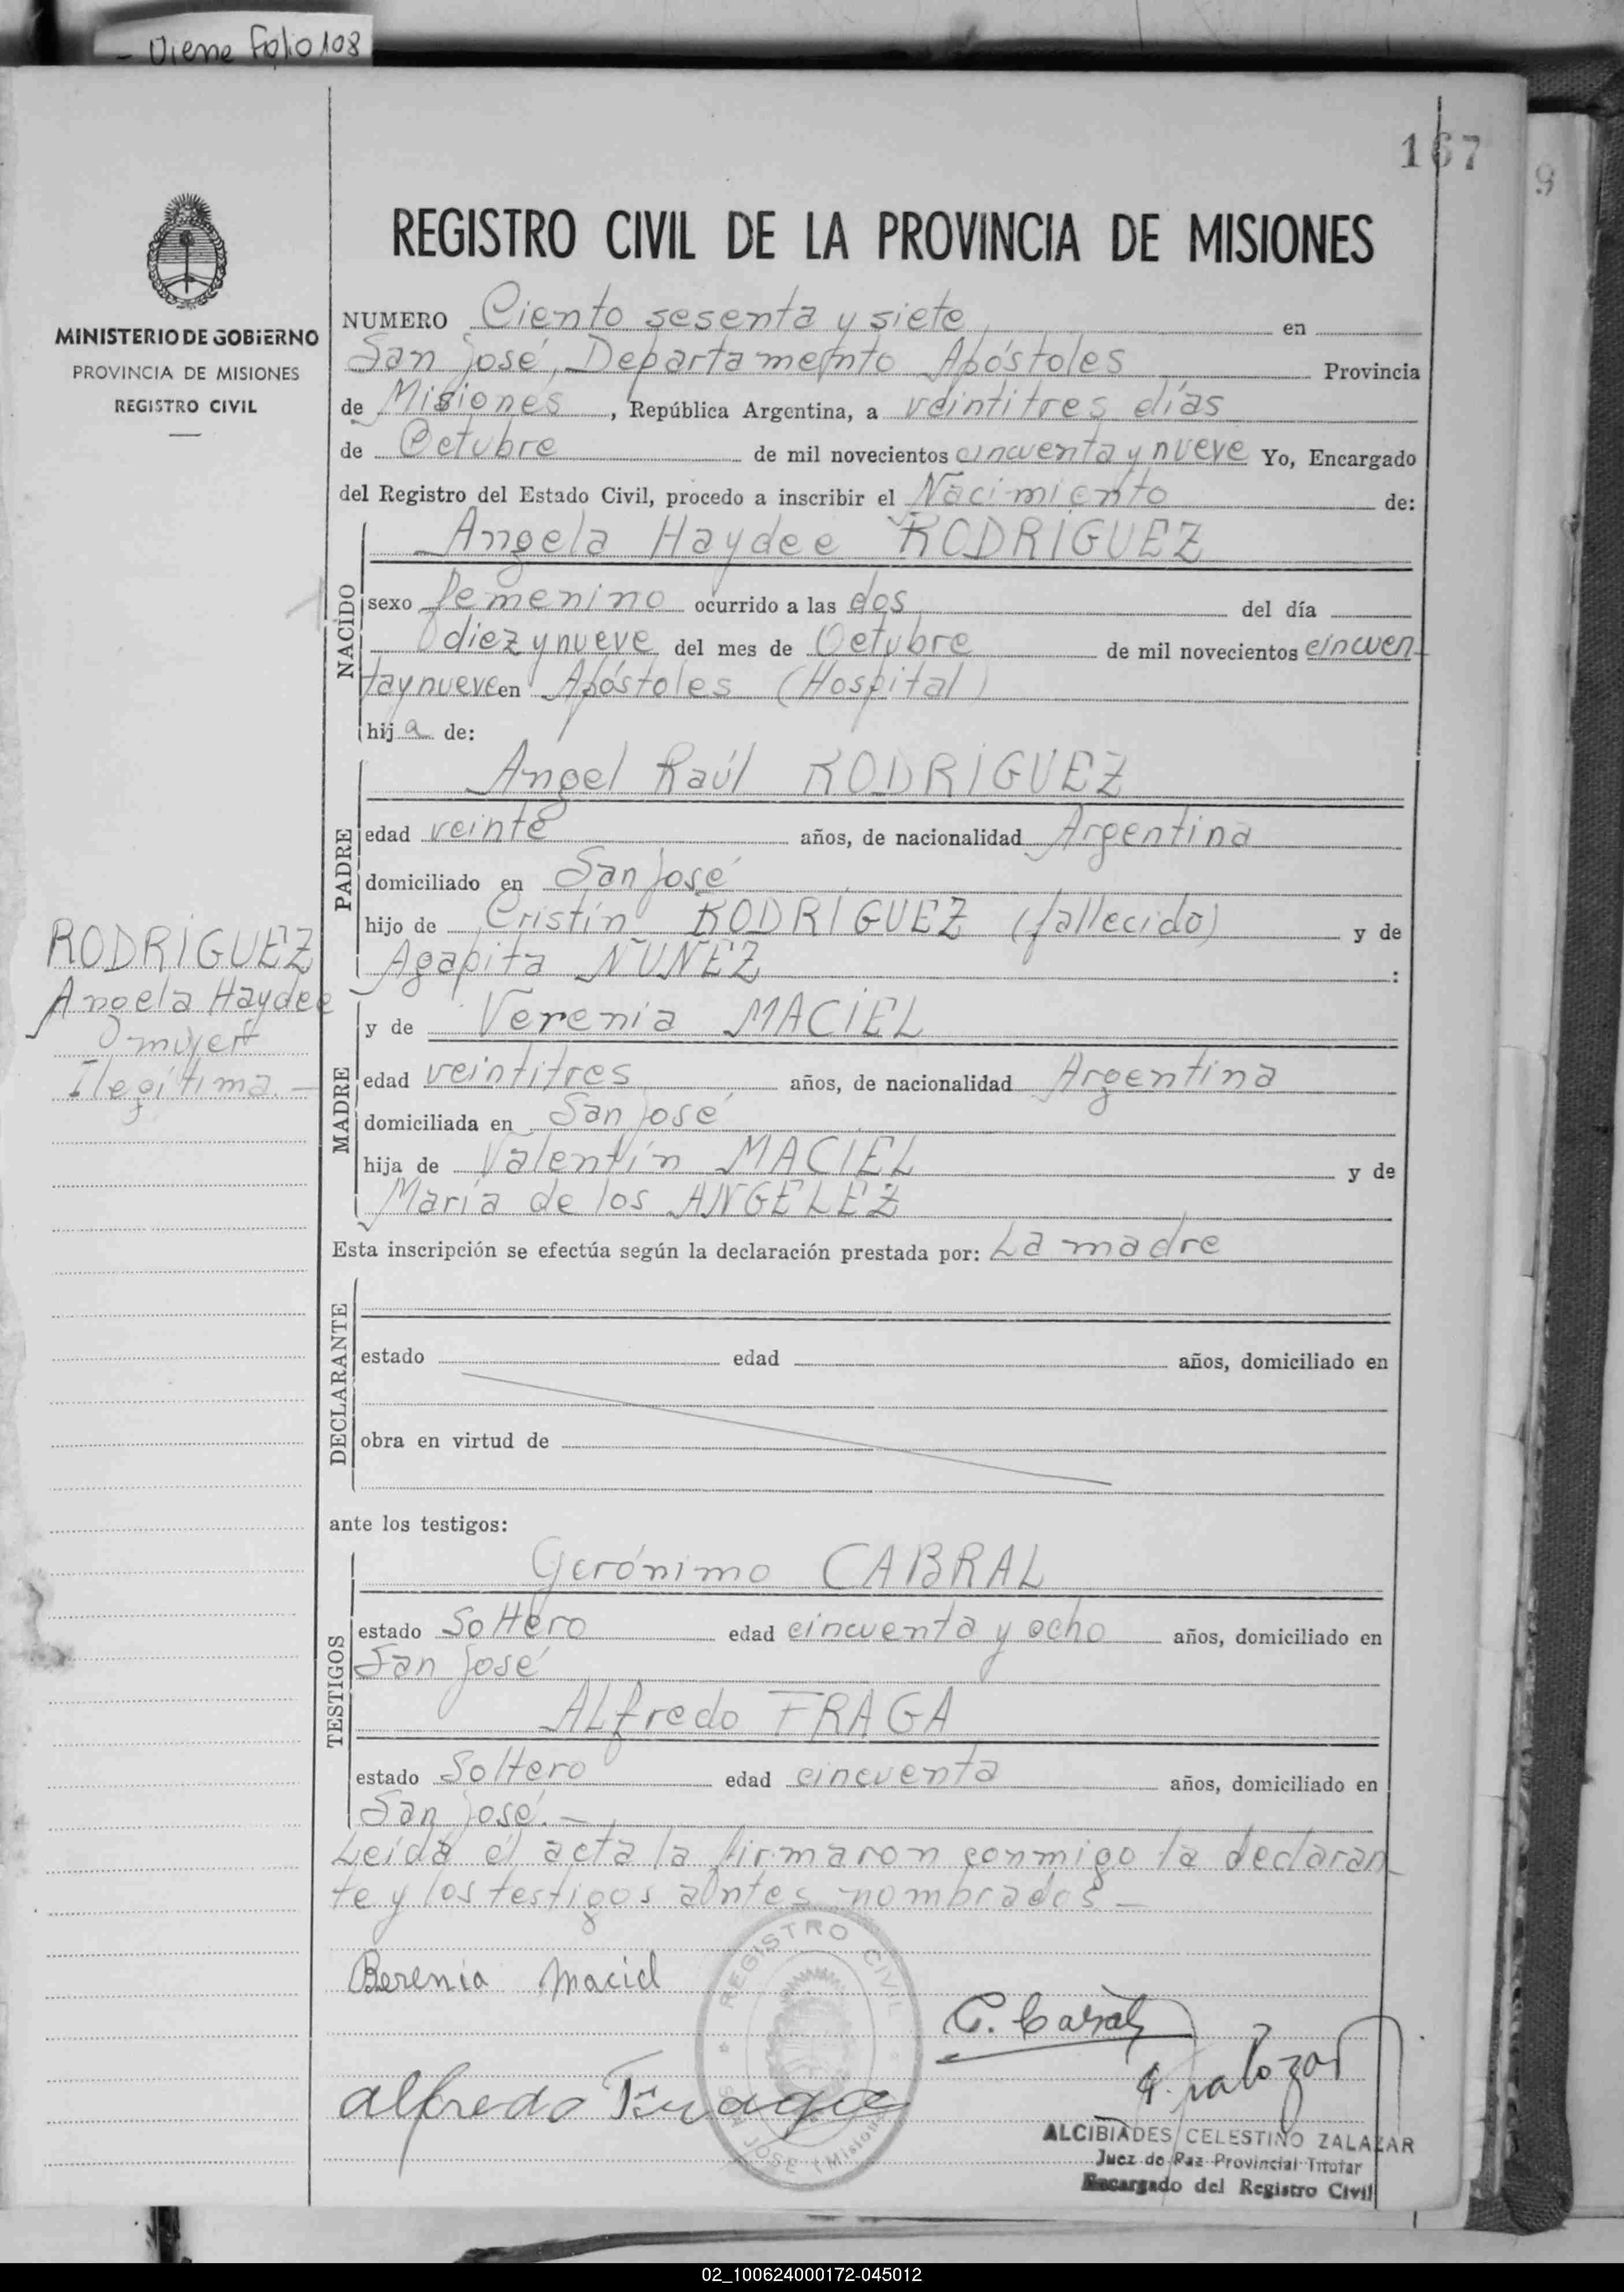 - Viene Folio 108
167
9
REGISTRO CIVIL DE LA PROVINCIA DE MISIONES
MINISTERIO DE GOBIERNO
PROVINCIA DE MISIONES
REGISTRO CIVIL
NUMERO Ciento sesenta y siete, en
San José, Departamento Apóstoles Provincia
de Misiones, República Argentina, a veintitres días
de Octubre de mil novecientos cincuenta y nueve Yo, Encargado
del Registro del Estado Civil, procedo a inscribir el Nacimiento de:
NACIDO
Angela Haydee RODRIGUEZ
sexo femenino ocurrido a las dos del día
diez y nueve del mes de Octubre de mil novecientos cincuen-
ta y nueve en Apóstoles (Hospital)
hija de:
PADRE
Angel Raúl RODRIGUEZ
edad veinte años, de nacionalidad Argentina
domiciliado en San José
hijo de Cristín RODRIGUEZ (fallecido) y de
Agapita NUNEZ :
RODRIGUEZ
Angela Haydee
mujer
Ilegítima.-
MADRE
y de Verenia MACIEL
edad veintitres años, de nacionalidad Argentina
domiciliada en San José
hija de Valentín MACIEL y de
María de los ANGELEZ
Esta inscripción se efectúa según la declaración prestada por: La madre
DECLARANTE
estado edad años, domiciliado en
obra en virtud de
ante los testigos:
TESTIGOS
Gerónimo CABRAL
estado Soltero edad cincuenta y ocho años, domiciliado en
San José
ALfredo FRAGA
estado Soltero edad cincuenta años, domiciliado en
San José.-
Leída el acta la firmaron conmigo la declaran-
te y los testigos antes nombrados-
Berenia Maciel
REGISTRO CIVIL
SAN JOSE (Misiones)
C. Cabral
alfredo Fraga
ALCIBIADES CELESTINO ZALAZAR
Juez de Paz Provincial Titular
Encargado del Registro Civil
02_100624000172-045012